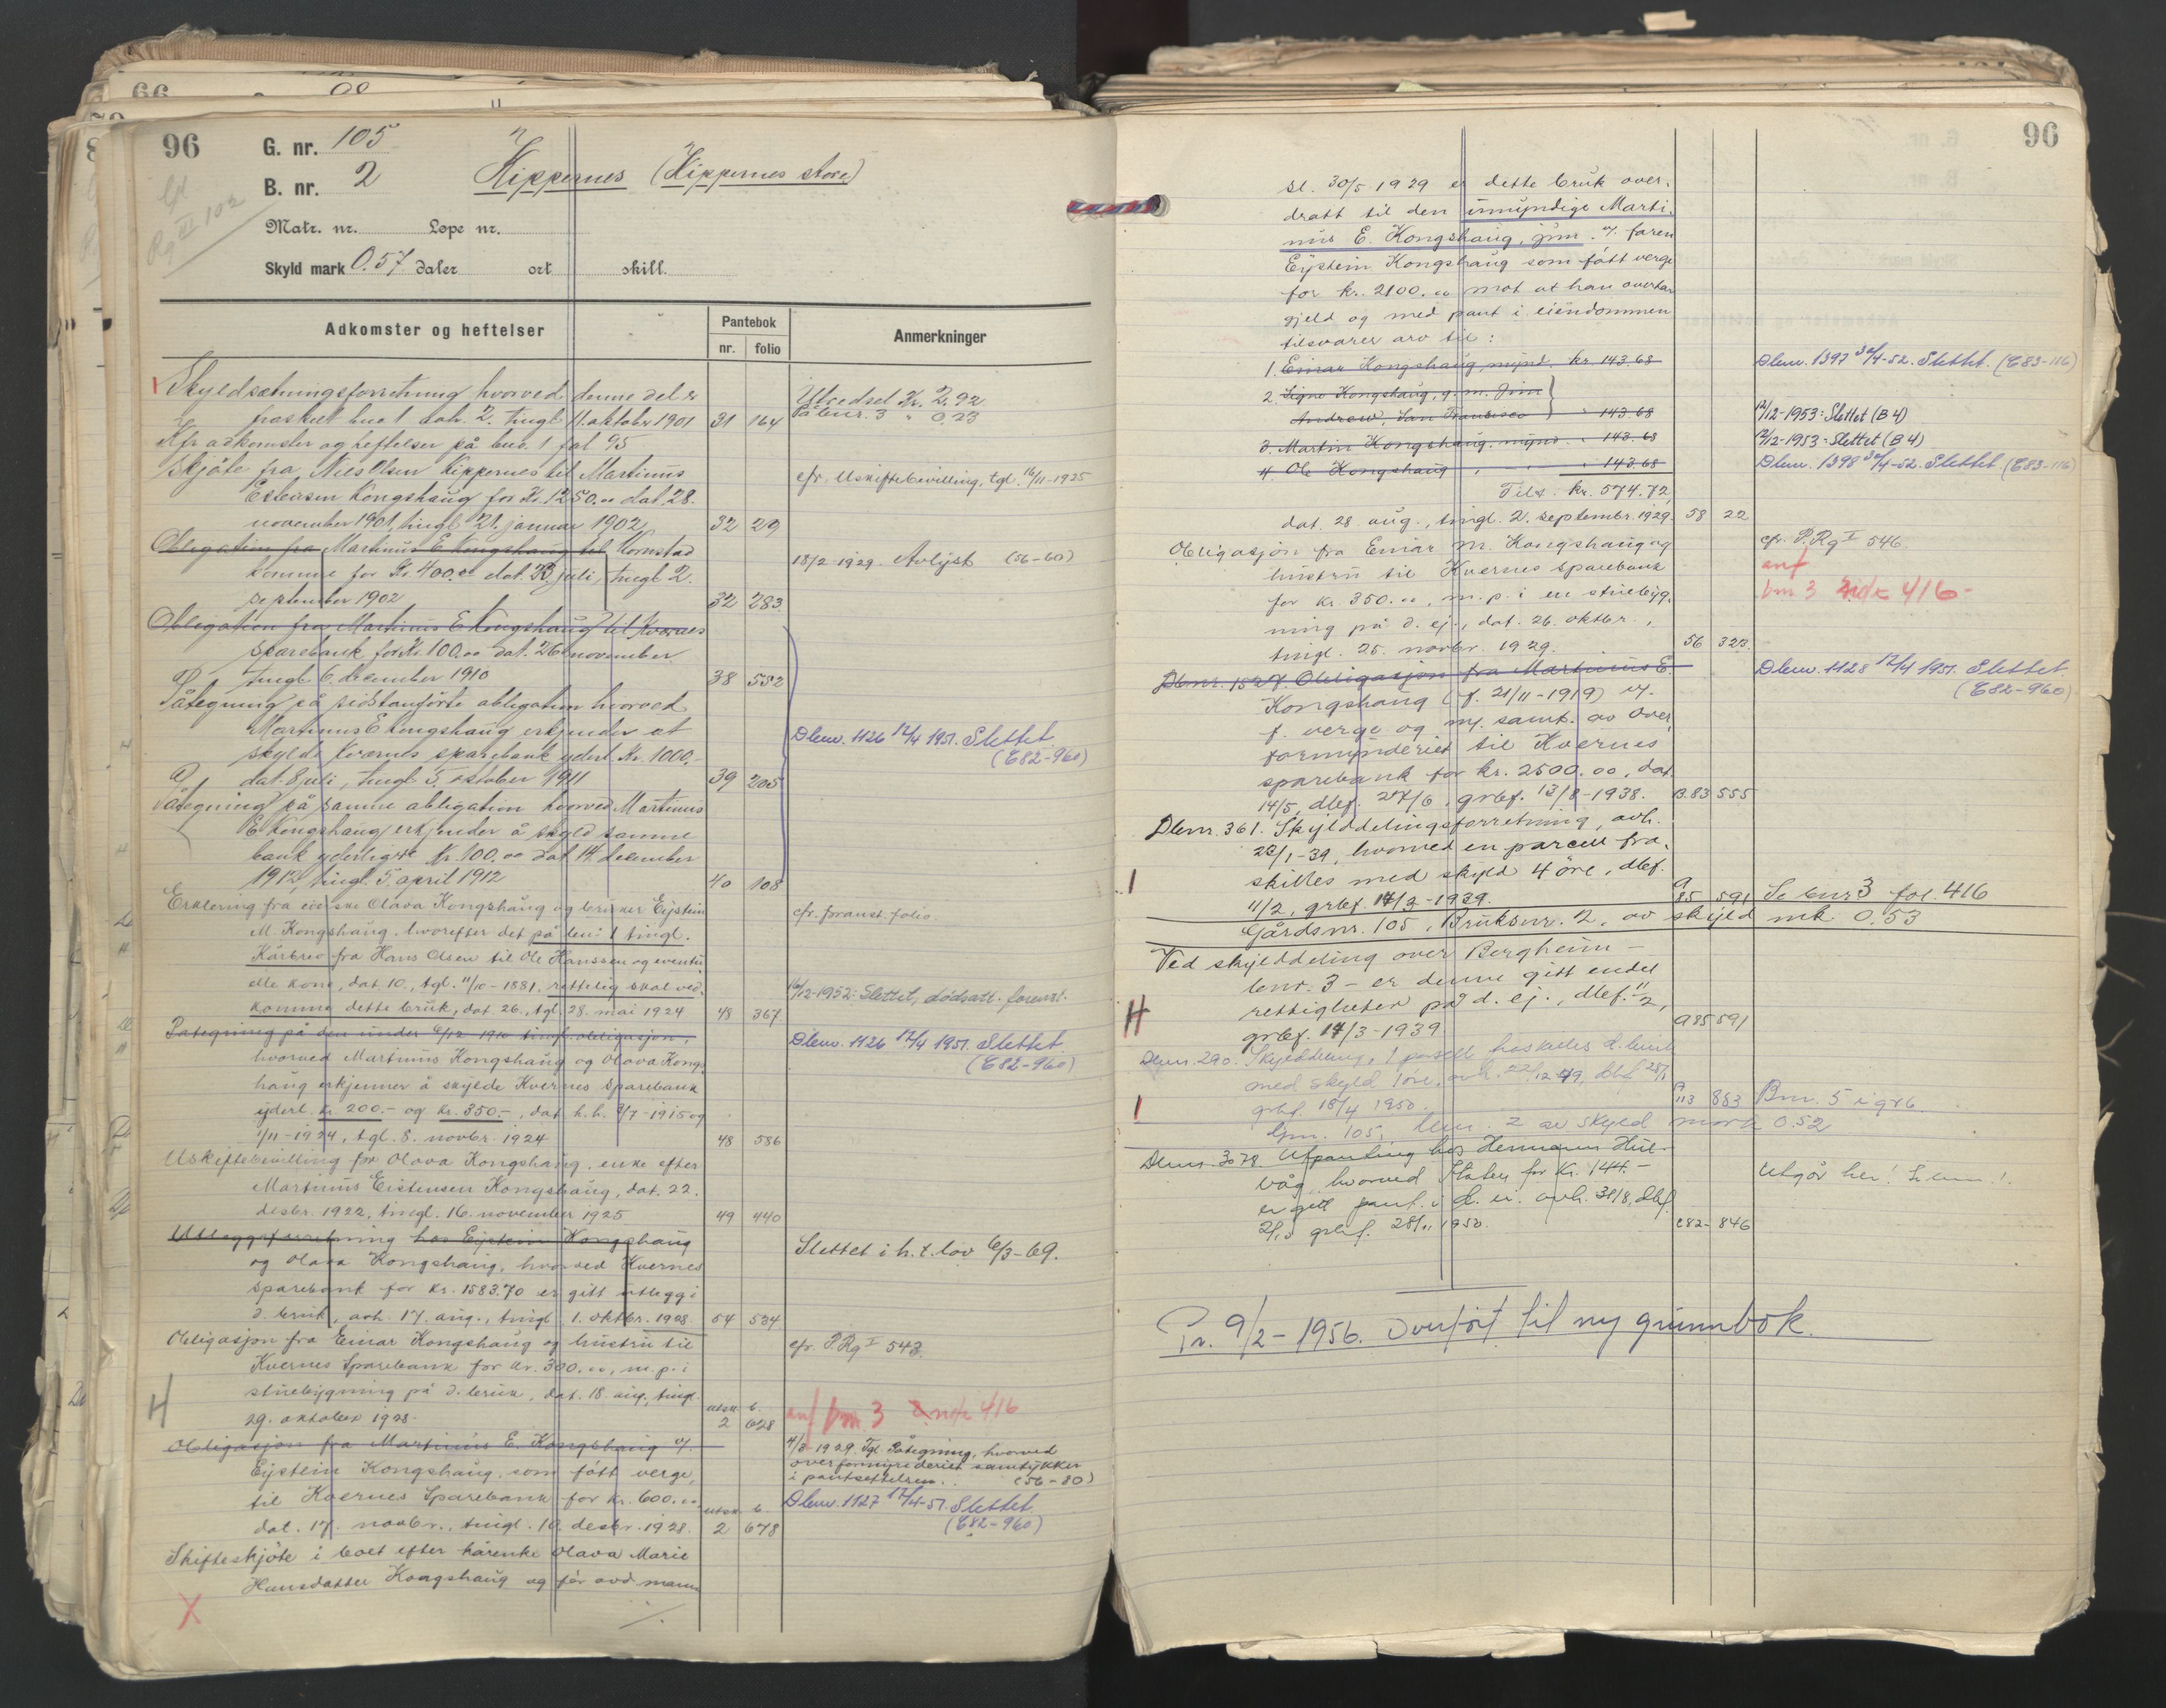 96
G. nr. 105
B. nr. 2
Kippernes (Kippernes store)
Matr. nr. Løpe nr.
Skyld mark 0.57 daler ort skill.
Rg VI 102
Adkomster og heftelser
Pantebok
nr. folio
Anmerkninger
Skyldsætningsforretning hvorved denne del er
fraskilt bno. 1 dat. 2. tingl. 11. oktober 1901 31 164
Utredsel Kr. 2.92
På bnr. 3 " 0.23
Kfr. adkomster og heftelser på bno. 1 fol 95
Skjøte fra Nils Olsen Kippernes til Martinus
Estensen Kongshaug for Kr. 1250.00 dat. 28.
november 1901, tingl. 21. januar 1902 32 29
cfr. Uskiftebevilling, tgl. 16/11-1925
Obligation fra Martinus E Kongshaug til Kornstad
komune for Kr. 400.00 dat. 23. juli, tingl. 2.
september 1902 32 283.
18/2-1929. Avlyst (56-60)
Obligation fra Martinus E Kongshaug til Kvernes
sparebank for Kr. 100.00 dat. 26 november
tingl. 6. december 1910 38 552
Påtegning på sidstanførte obligation hvorved
Martinus E Kongshaug erkjender at
skylde Kvernes sparebank yderl. Kr. 1000.-
dat. 8 juli, tingl. 5. oktober 1911 39 205
Dbnr. 1126 12/4 1951. Slettet
(C82-960)
Påtegning på samme obligation hvorved Martinus
E Kongshaug erkjender å skyld samme
bank yderligere Kr. 100.00 dat. 14 december
1912, tingl. 5. april 1912 40 108
Erklering fra eierske Olava Kongshaug og bruker Eystein
M. Kongshaug, hvorefter det på bnr. 1 tingl.
Kårbrev fra Hans Olsen til Ole Hanssen og eventu
elle kone, dat. 10., tgl. 11/10-1881, rettelig skal ved-
komme dette bruk, dat. 26., tgl. 28. mai 1924 48 367
cfr. foranst. folio.
16/12-1952: Slettet, dødsatt. forevist.
Påtegning på den under 6/12 1910 tingl. obligasjon,
hvorved Martinus Kongshaug og Olava Kongs-
haug erkjenner å skylde Kvernes Sparebank
yderl. kr. 200.- og kr. 350.-, dat. h.h. 3/7-1915 og
1/11-1924, tgl. 8. novbr. 1924 48 586
Dbnr. 1126 12/4 1951. Slettet
(C82-960)
Uskiftebevilling for Olava Kongshaug, enke efter
Martinus Eistensen Kongshaug, dat. 22.
desbr. 1922, tingl. 16. november 1925 49 440
Utleggsforretning hos Eystein Kongshaug
og Olava Kongshaug, hvorved Kvernes
Sparebank for kr. 1583.70 er gitt utlegg i
d. bruk, avh. 17. aug., tingl. 1. oktbr. 1928 54 534
Slettet i h. t. lov 6/3-69.
Obligasjon fra Einar Kongshaug og hustru til
Kvernes Sparebank for kr. 300.00, m. p. i
stuebygning på d. bruk, dat. 18. aug., tingl.
29. oktober 1928. 2 628
cfr. P.Rg I 543.
H
anf bnr 3 side 416
Obligasjon fra Martinus E. Kongshaug v.
Eystein Kongshaug, som født verge,
til Kvernes Sparebank for kr. 600.00
dat. 17. novbr., tingl. 10. desbr. 1928. 2 678
4/3-1929. Tgl. Påtegning, hvorved
overformynderiet samtykker
i pantsettelsen. (56-80)
Dbnr. 1127 12/4-51. Slettet
(C82-960)
Skifteskjøte i boet efter kårenke Olava Marie
Hansdatter Kongshaug og før avd. mann
X
96
sl. 30/5 1929 er dette bruk over-
dratt til den umyndige Marti-
nus E. Kongshaug, jun. v. faren
Eystein Kongshaug som født verge
for kr. 2100.00 mot at han overtar
gjeld og med pant i eiendommen
tilsvarer arv til:
1. Einar Kongshaug, mynd. kr. 143.68
Dbnr. 1397 30/4-52. Slettet. (C83-116)
2. Signe Kongshaug, g. m. Jim
Andrew, San Francisco " 143.68
12/12-1953: Slettet (B4)
3. Martin Kongshaug, mynd. " 143.68
12/12-1953: Slettet (B4)
4. Ole Kongshaug " - " 143.68
Dbnr. 1398 30/4-52. Slettet (C83-116)
Tils. kr. 574.72,
dat. 28 aug., tingl. 2. septembr. 1929. 58 22
Obligasjon fra Einar M. Kongshaug og
hustru til Kvernes Sparebank
for kr. 350.00, m. p. i en stuebyg-
ning på d. ej., dat. 26. oktbr.,
tingl. 25. novbr. 1929. 56 323.
cfr. P.Rg I 546.
anf
bnr 3 side 416-
Dbnr. 1527. Obligasjon fra Martinus E.
Kongshaug (f. 21/11-1919) v.
f. verge og m. samt. av over-
formynderiet til Kvernes
sparebank for kr. 2500.00, dat.
14/5, dbf. 27/6, grbf. 13/8-1938. B.83 555
Dbnr. 1128 12/4 1951. Slettet.
(C82-960)
Dbnr. 361. Skylddelingsforretning, avh.
23/1-39, hvorved en parcell fra-
skilles med skyld 4 øre, dbf.
11/2, grbf. 17/3-1939. A 85 591
Se bnr 3 fol. 416
Gårdsnr. 105, Bruksnr. 2, av skyld mk 0.53
Ved skylddeling over Bergheim -
bnr. 3 - er denne gitt endel
rettigheter på d. ej., dbf. 11/2,
grbf. 17/3-1939. A85 591
H
Dbnr. 290. Skylddeling, 1 parsell fraskilles d. bruk
med skyld 1 øre, avh. 22/12-49, dbf 28/1
grbf. 18/4 1950. A 113 883
Bnr. 5 i grb.
Gnr. 105, bnr. 2 av skyld mark 0.52
Dbnr. 3078. Utpanting hos Hermann Hul-
våg, hvorved Staten for kr. 144.-
er gitt pant i d. ei. avh. 31/8, dbf.
grbf. 28/11 1950. C82- 846
Utgår her!
Pr. 9/2-1956. Overført til ny grunnbok.